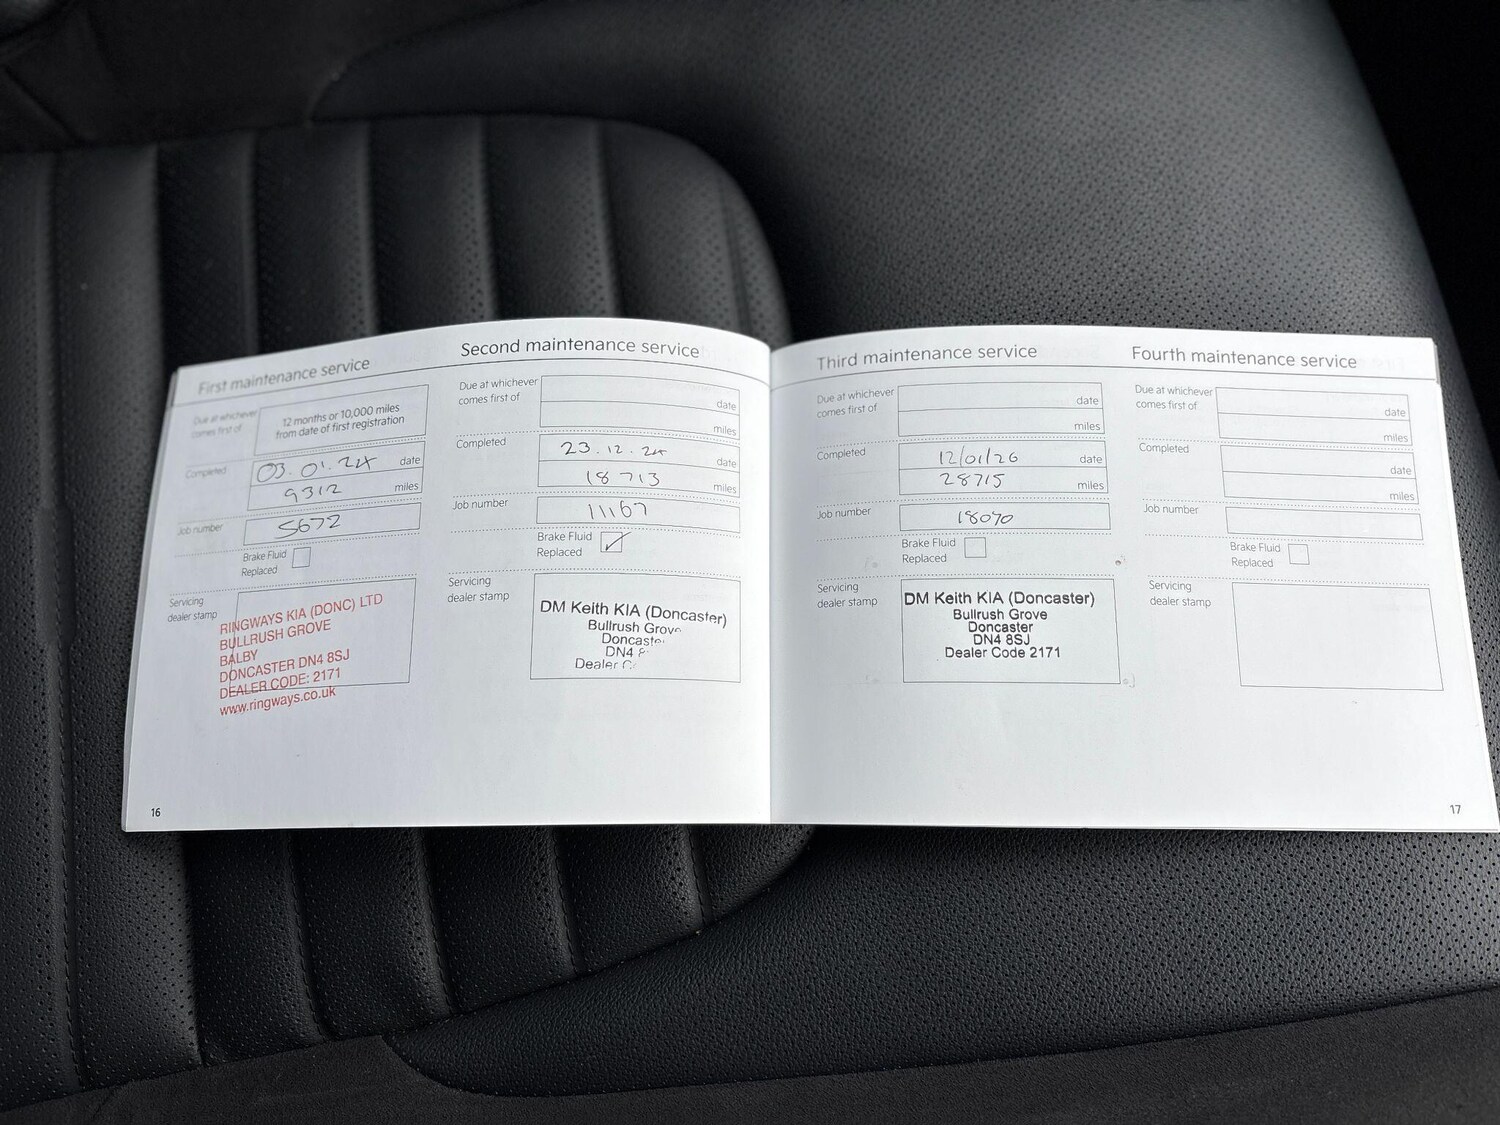 First maintenance service
Due at whichever
comes first of
12 months or 10,000 miles
from date of first registration
Completed
03.01.24 date
9312 miles
Job number
5672
Brake Fluid
Replaced
Servicing
dealer stamp
RINGWAYS KIA (DONC) LTD
BULLRUSH GROVE
BALBY
DONCASTER DN4 8SJ
DEALER CODE: 2171
www.ringways.co.uk
16
Second maintenance service
Due at whichever
comes first of
date
miles
Completed
23.12.24 date
18713 miles
Job number
11167
Brake Fluid
Replaced
Servicing
dealer stamp
DM Keith KIA (Doncaster)
Bullrush Grov
Doncaste
DN4
Dealer
Third maintenance service
Due at whichever
comes first of
date
miles
Completed
12/01/26 date
28715 miles
Job number
18070
Brake Fluid
Replaced
Servicing
dealer stamp
DM Keith KIA (Doncaster)
Bullrush Grove
Doncaster
DN4 8SJ
Dealer Code 2171
Fourth maintenance service
Due at whichever
comes first of
date
miles
Completed
date
miles
Job number
Brake Fluid
Replaced
Servicing
dealer stamp
17